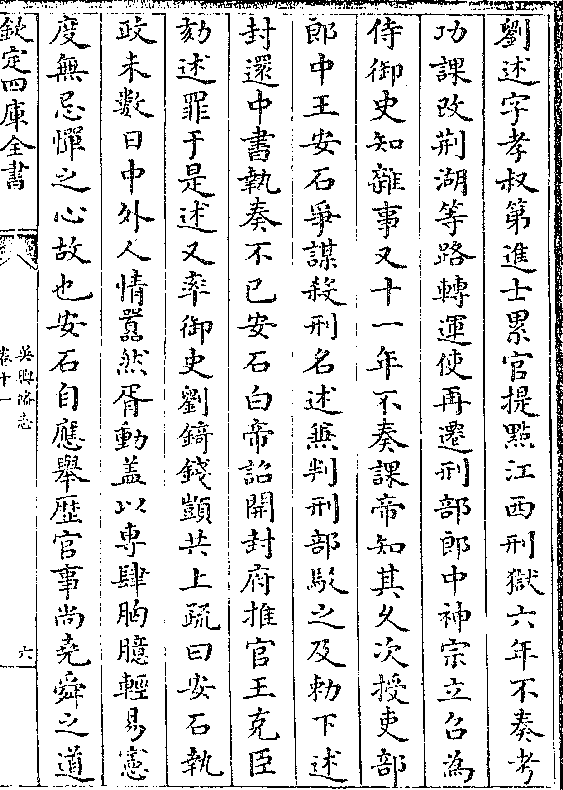 劉述字孝叔第進士累官提㸃江西刑獄六年不奏考
功課改荆湖等路轉運使再遷刑部郎中神宗立召為
侍御史知雜事又十一年不奏課帝知其久次授吏部
郎中王安石爭謀殺刑名述兼判刑部駁之及勅下述
封還中書執奏不已安石白帝詔開封府推官王克臣
劾述罪于是述又率御史劉錡錢顗共上疏曰安石執
政未數日中外人情囂然胥動盖以專肆胸臆輕易憲
度無忌憚之心故也安石自應舉歴官事尚堯舜之道
欽定四庫全書
吳興備志
卷十一
六